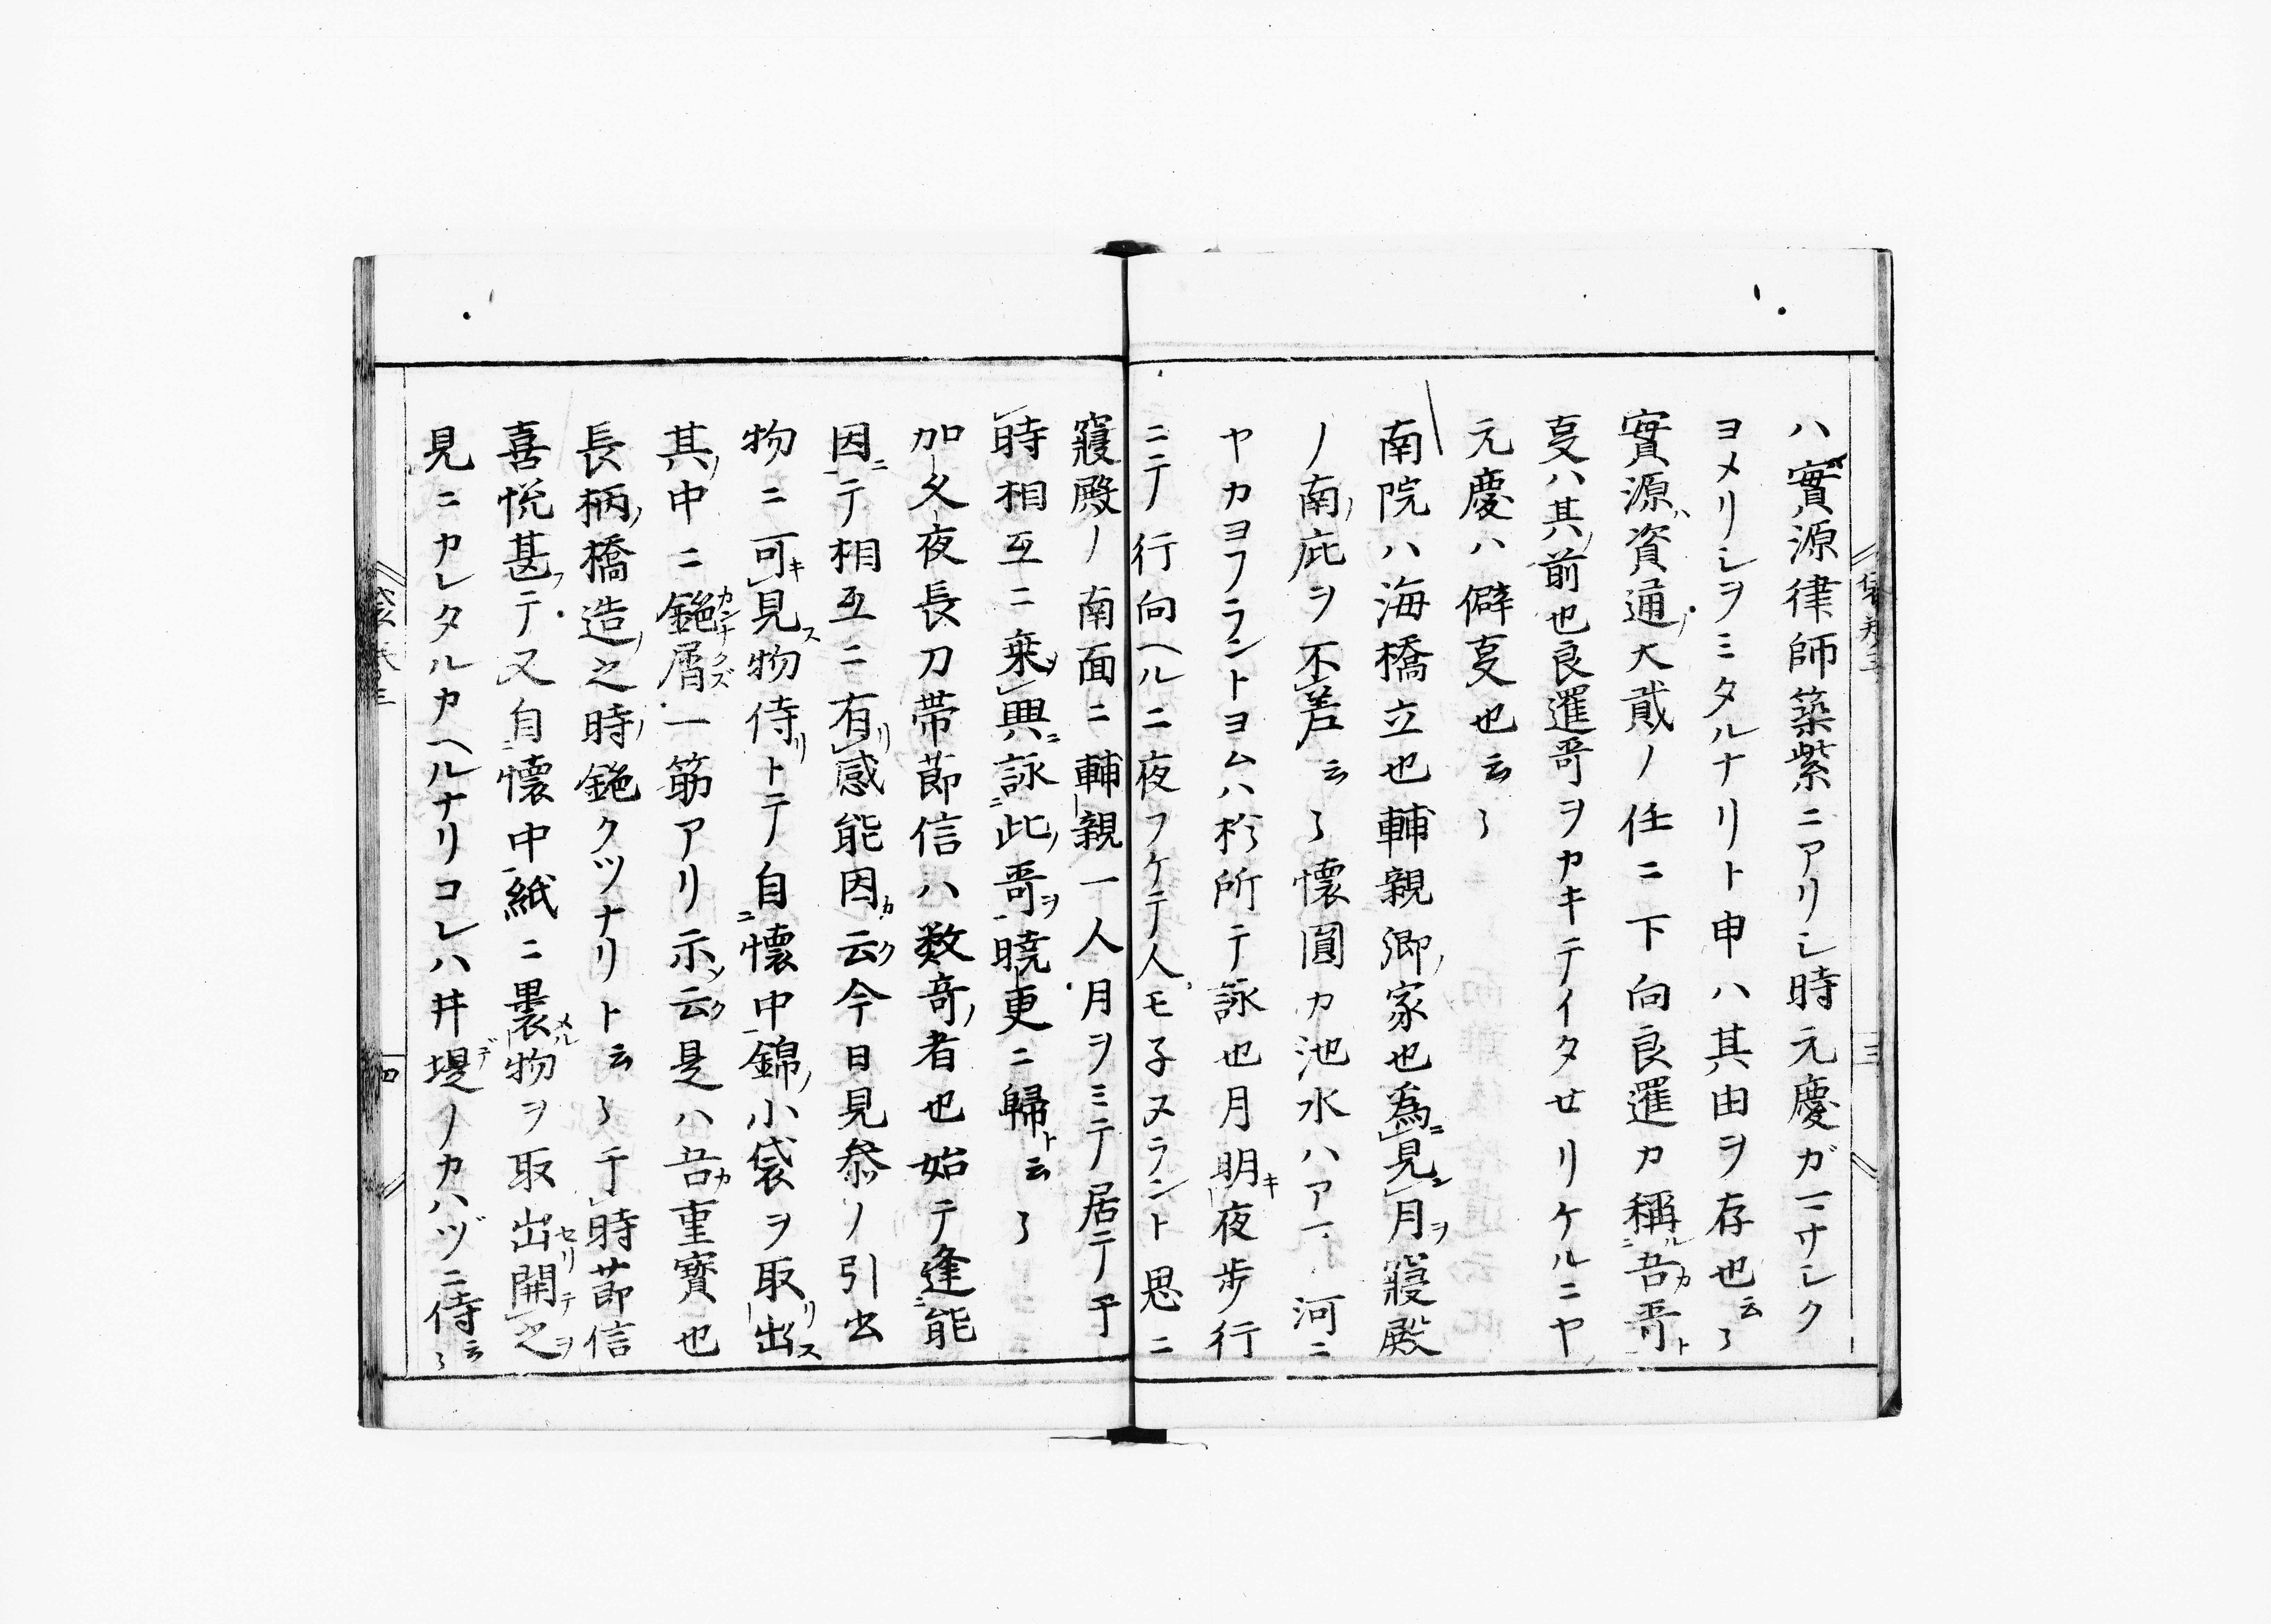 ハ實源律師築紫ニアリシ時元慶ガマサシク
ヨメリシヲミタルナリト申ハ其由ヲ存也云々
實源ハ資通ノ大貳ノ任ニ下向良暹カ稱ルニ吾カ哥ト
㕝ハ其ノ前也良暹哥ヲカキテイタセリケルニヤ
元慶ハ僻㕝也云々
南院ハ海橋立也輔親卿ノ家也為ニ見ン月ヲ寝殿
ノ南ノ庇ヲ不差云々懐圓カ池水ハアマノ河ニ
ヤカヨフラントヨムハ於所テ詠也月明キ夜歩行
ニテ行向ヘルニ夜フケテ人モ子ヌラント思ニ
寝殿ノ南面ニ輔親一人月ヲミテ居テ于
時相互ニ乗ソ興ニ詠ニ此ノ哥ヲ暁更ニ歸ト云々
加久夜長刀帯節信ハ数竒ノ者也始テ逢ニ能
因ニテ相互ニ有リ感能因カ云ク今日見参ノ引出
物ニ可キ見ス物侍リトテ自ニ懐中錦ノ小袋ヲ取リ出ス
其ノ中ニ鉋屑カンナクズ一筋アリ示ソ云ク是ハ吾カ重寳也
長柄ノ橋造ノ之時ノ鉋クツナリト云々于時節信
喜悦甚フテ又自懐中紙ニ裹メル物ヲ取出セリ開テ之ヲ
見ニカレタルカヘルナリコレハ井堤デノカハヅニ侍云々